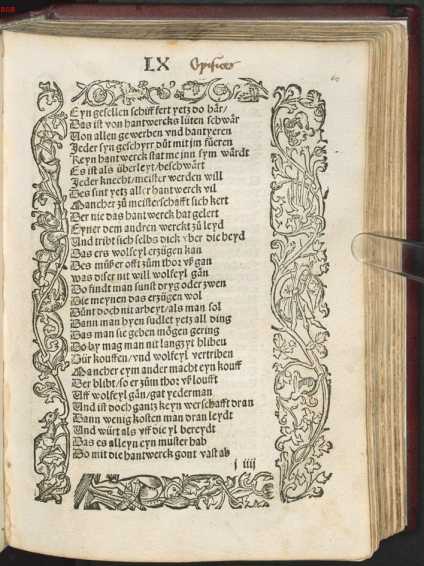 LX Opifices
60
Eyn gesellen schiff fert yetz do här/
Das ist von hantwercks lüten schwär
Von allen gewerben vnd hantyeren
Jeder syn geschyrr důt mit jm fůeren
Keyn hantwerck stat me jnn sym wärdt
Es ist als überleyt/beschwärt
Jeder knecht/meister werden will
Des sint yetz aller hantwerck vil
Mancher zů meisterschafft sich kert
Der nie das hantwerck hat gelert
Eyner dem andren werckt zů leyd
Vnd tribt sich selbs dick vber die heyd
Das ers wolfeyl erzügen kan
Des můß er offt zům thor vß gan
was diser nit will wolfeyl gän
Do findt man sunst dryg oder zwen
Die meynen das erzügen wol
Dünt doch nit arbeyt/als man sol
Dann man hyen sudlet yetz all ding
Das man sie geben mögen gering
Do by mag man nit langzyt bliben
Dür kouffen/vnd wolfeyl vertriben
Mancher eym ander macht eyn kouff
Der blibt/so er zům thor vß loufft
Vff wolfeyl gän/gat yederman
Vnd ist doch gantz keyn werschafft dran
Dann wenig kosten man dran leydt
Vnd würt als vff die yl bereydt
Das es alleyn eyn muster hab
Do mit die hantwerck gont vast ab
j iiij